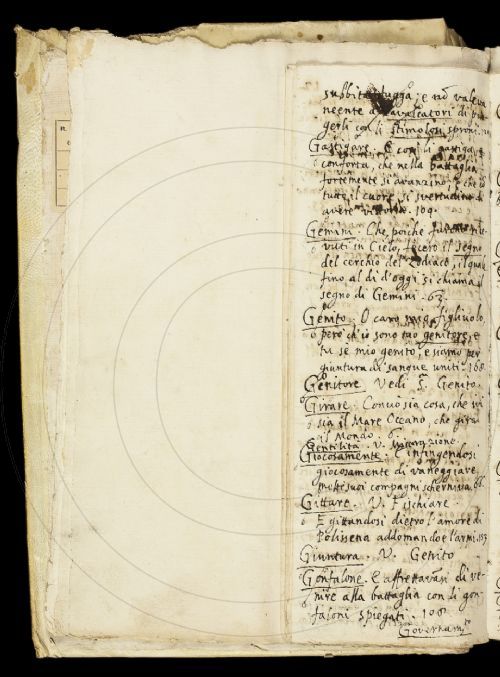 subbita fugga; e nõ valeva
neente a cavalcatori di pu
gerli con li stimolosi sproni.
Gastigare. E così li gastiga, e
conforta, che nella battaglia
fortemente si avanzino
tutto il cuore, si
avere vittoria. 109.
Gemini. Che, poiche furono rice
vuti in Cielo, fecero il segno
del cerchio del Zodiaco, il quale
fino al di d'oggi si chiama il
segno di Gemini. 63.
Genito. O caro mio figliuolo,
però ch'io sono tuo genitore, e
tu se mio genito; e siamo per
giuntura di sangue uniti. 168.
Genitore. Vedi Genito.
Girare. Conciò sia cosa, che ivi
sia il Mare Oceano, che gira
il Mondo. 6.
Gentilità. V.
Giocosamente. E infingendosi
giocosamente di vaneggiare
molti suoi compagni scherniva.
Gittare. V. Fischiare.
E gittandosi dietro l'amore di
Polissena addomandoe l'armi.
Giuntura. V. Genito
Gonfalone. E affrettavãsi di ve-
nire alla battaglia con li gon-
faloni spiegati. 108.
Governam.to